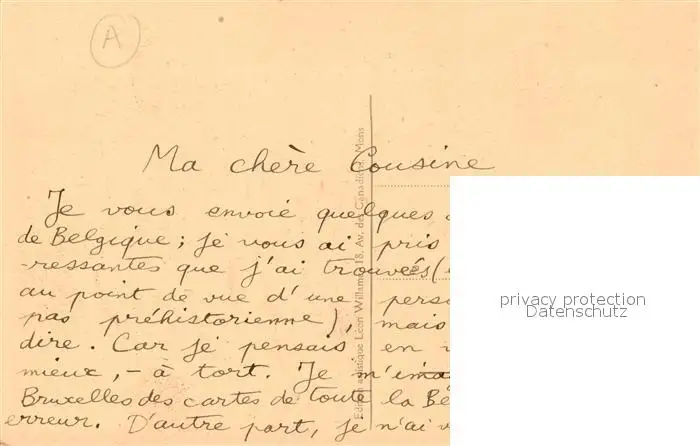 A
Ma chère Cousine
Je vous envoie quelques
de Belgique ; je vous ai pris
-ressantes que j'ai trouvées (
au point de vue d'une pers
pas préhistorienne), mais
dire. Car je pensais en
mieux, - à tort. Je m'ima
Bruxelles des cartes de toute la Be
erreur. D'autre part, je n'ai v
Edition artistique Léon Willame, 18, Av. des Canadiens, Mons
privacy protection
Datenschutz